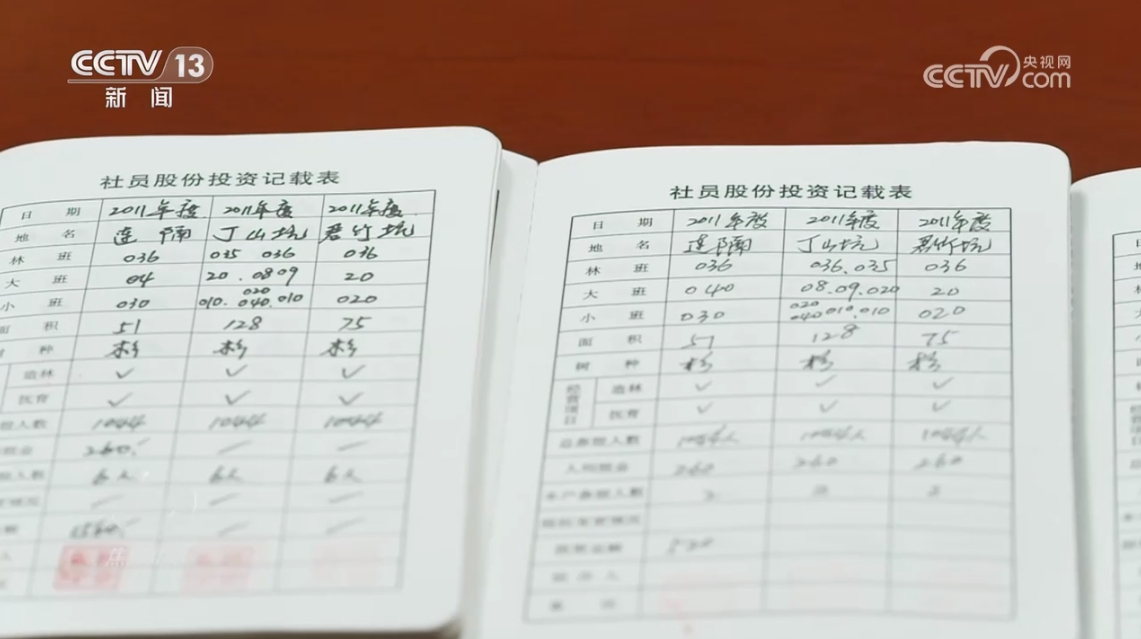 CCTV 13
新闻
央视网
CCTV.com
社员股份投资记载表
日期 2011年度 2011年度 2011年度
地名 连 丁山坑 君竹坑
林班 036 035 036 036
大班 04 20.0809 20
小班 030 020 010.040.010 020
面积 51 128 75
种 杉 杉 杉
造林 ✓ ✓ ✓
抚育 ✓ ✓ ✓
人数 1044 1044 1044
260
人数 6人 6人 6人
1560
社员股份投资记载表
日期 2011年度 2011年度 2011年度
地名 连 丁山坑 君竹坑
林班 036 036.035 036
大班 040 08.09.020 20
小班 030 020 040 010.010 020
面积 51 128 75
树种 杉 杉 杉
经营项目 造林 ✓ ✓ ✓
抚育 ✓ ✓ ✓
人数 1044人 1044人 1044人
260 260 260
本户参股人数 2 2 2
520